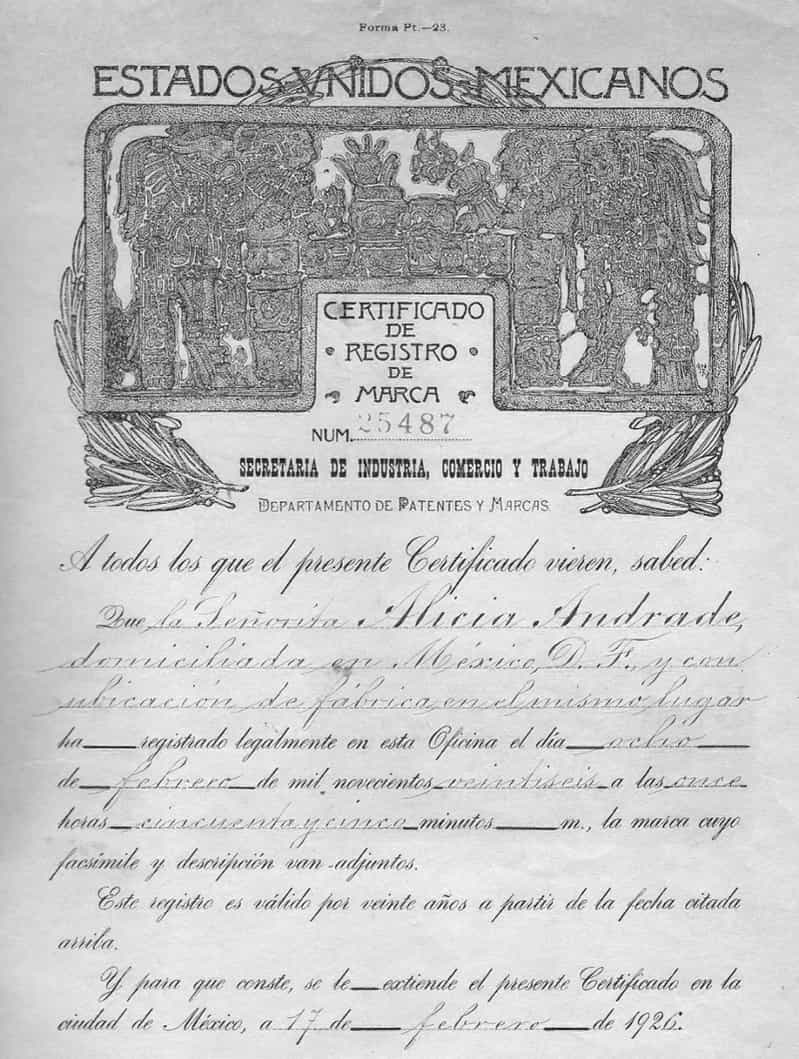 Forma Pt.—23.
ESTADOS VNIDOS MEXICANOS
CERTIFICADO
DE
• REGISTRO •
DE
MARCA
NUM. 25487
SECRETARIA DE INDUSTRIA, COMERCIO Y TRABAJO
DEPARTAMENTO DE PATENTES Y MARCAS.
A todos los que el presente Certificado vieren, sabed:
Que la Señorita Alicia Andrade,
domiciliada en México, D. F., y con
ubicación de fábrica en el mismo lugar
ha registrado legalmente en esta Oficina el día ocho
de febrero de mil novecientos veintiseis a las once
horas cincuenta y cinco minutos m., la marca cuyo
facsímile y descripción van adjuntos.
Este registro es válido por veinte años a partir de la fecha citada
arriba.
Y para que conste, se le extiende el presente Certificado en la
ciudad de México, a 17 de febrero de 1926.